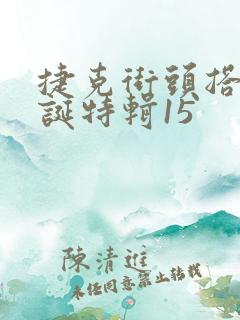 捷克街頭搭
誕特輯15
陳清進
未任同意禁止轉載